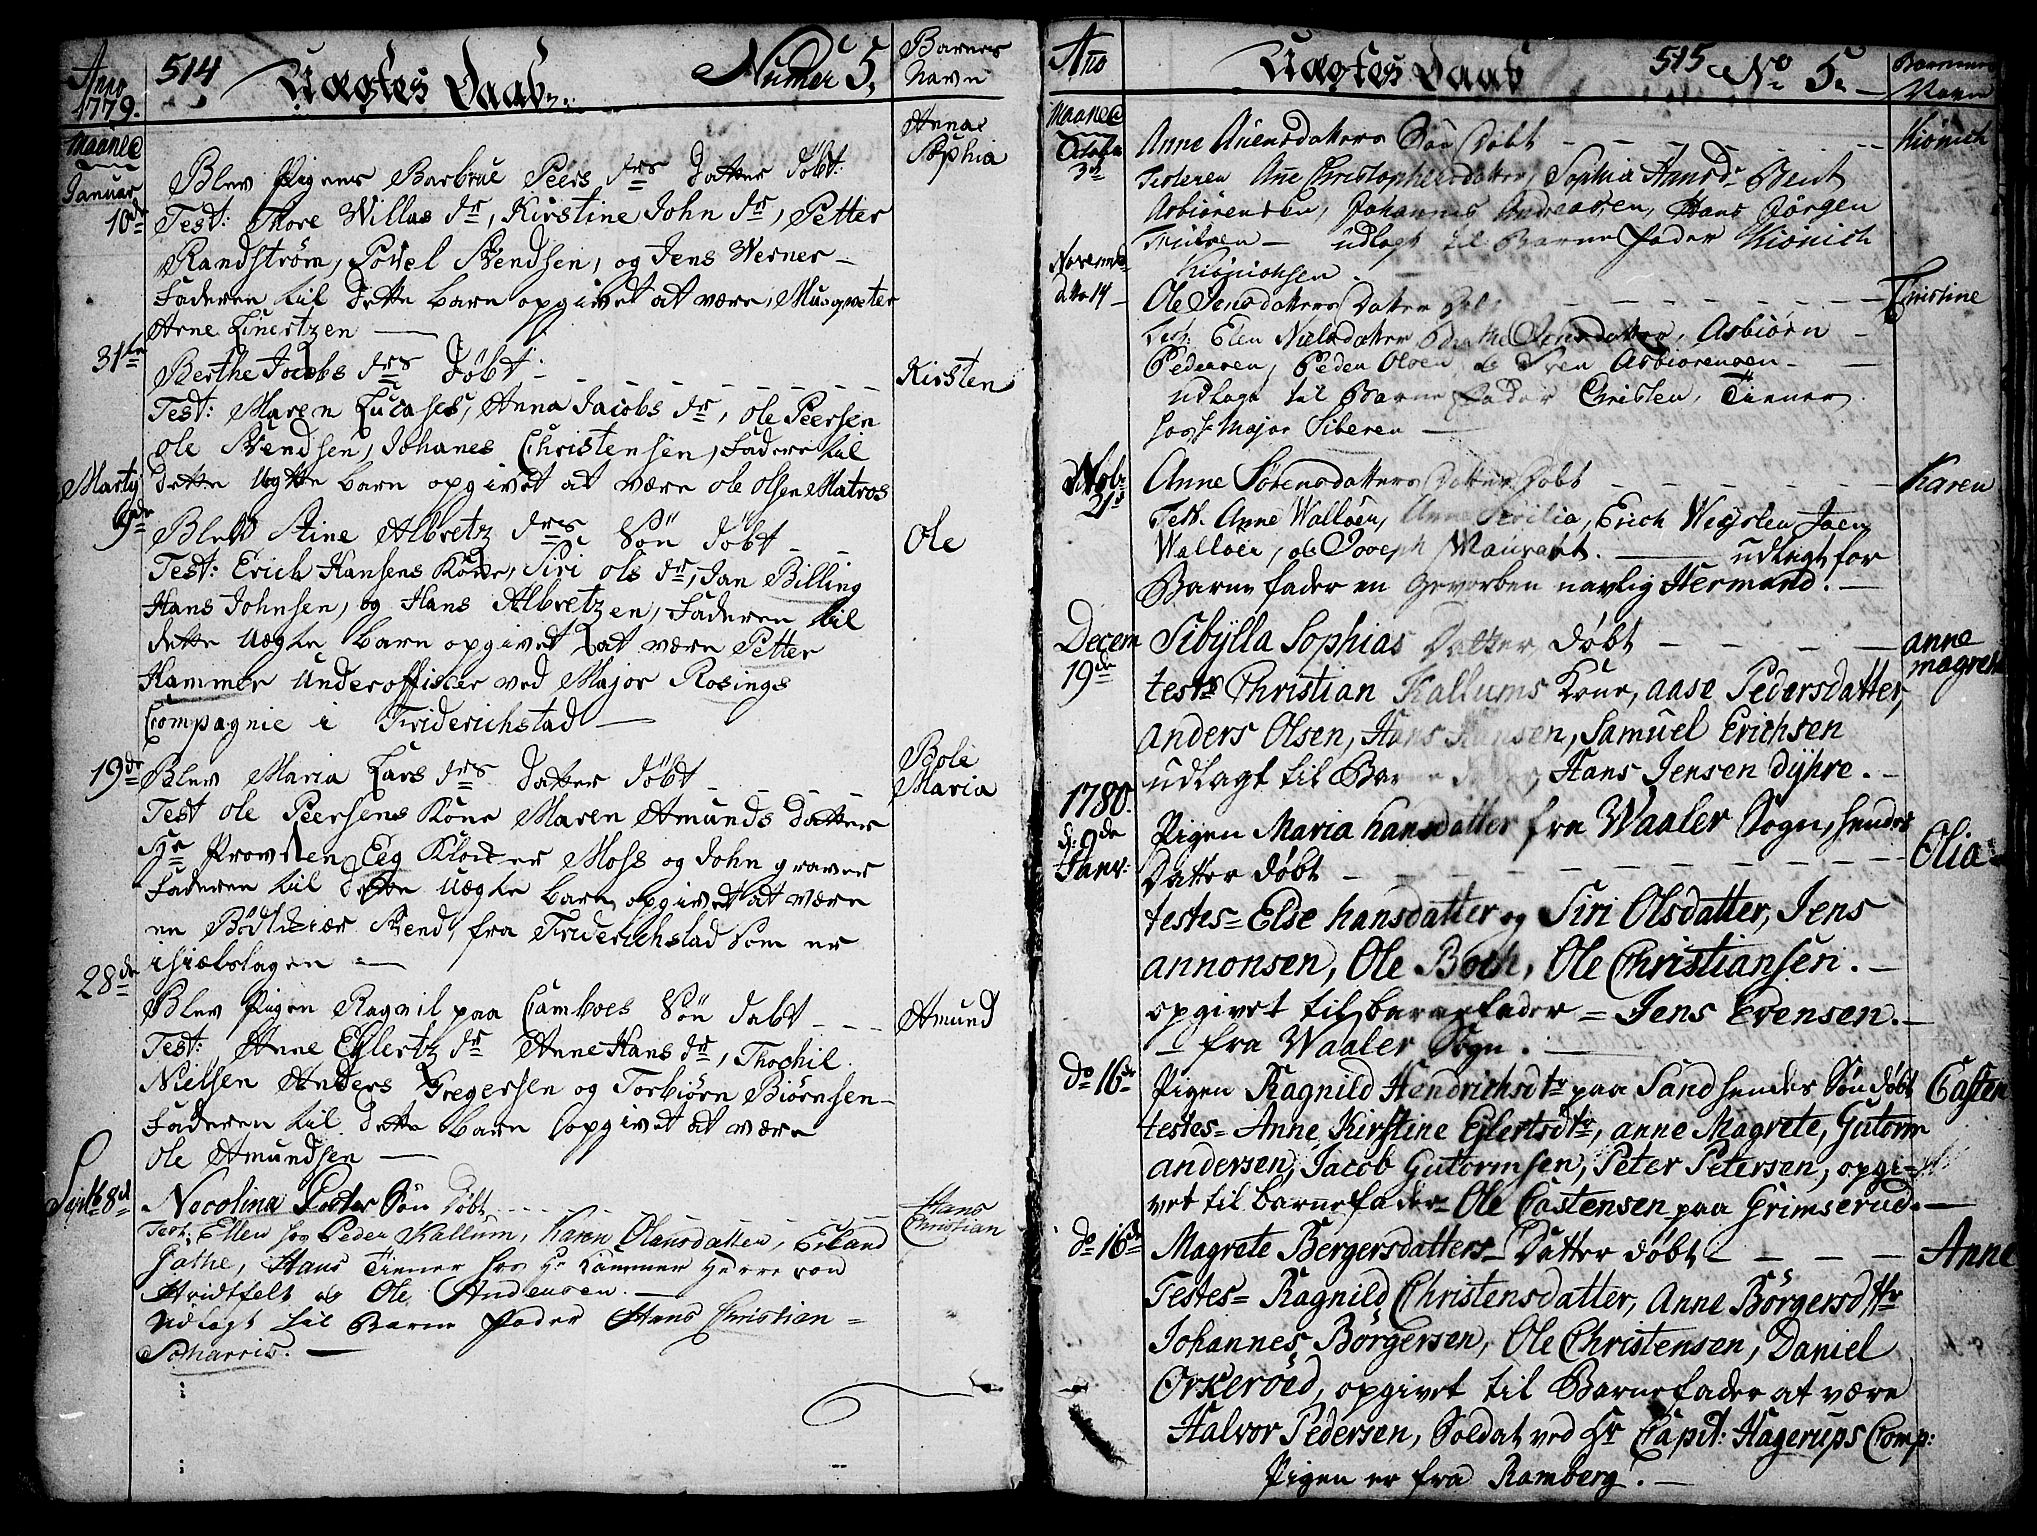 Anno 1779. 514 Uægtes Daab. Numer 5. Barnes Navn
Maaned
Januar 10de Blev Pigens Barbrue Peers drs Datter Döbt: Anna Sophia
Test: Thore Willas dr, Kirstine John dr, Petter
Randström, Povel Svendsen, og Jens Werner
Faderen til dette barn opgivet at være, Musqveter
Arne Einertzen
31te Berthe Jocobs drs Döbt Kirsten
Test: Maren Lucases, Anna Jacobs dr, Ole Peersen
Ole Svendsen, Johanes Christensen, Fadere til
Marty dette Uegte barn opgivet at være ole olsen Matros
9de Blev Stine Albretz drs Sön döbt Ole
Test: Erich Hansens Kone, Siri ols dr, Jan Billing
Hans Johnsen, og Hans Albretzen, Faderen til
dette Uægte barn opgivet at være Petter
Hammer Underofficer ved Major Rosings
Compagnie i Friderichstad
19de Blev Maria Lars drs Datter döbt Bole Maria
Test Ole Peersens Kone Maren Amunds datter
Hr Provsten Eeg Kloker Moss og John graver
Faderen til dette Uægte barn opgivet at være
en Bödtker Svend, fra Friderichstad Som er
28de
Blev Pigen Ragnil paa Camboes Sön dabt Amund
Test: Anne Eylertz dr Anne Hans dr, Thochil
Nielsen Anders Gregersen og Torbiörn Biörnsen
Faderen til dette barn opgivet at være
Ole Amundsen
Nocolina Sön Döbt Hans Christian
Test: Ellen hos Peder Kallum, Karen Olausdatter, Erland
Gathe, Hans Tiener hos Hr Kammer Herre von
Hvidtfelt og Ole Andersen.
Udlagt til Barne Fader Hans Christian
Scharris.
Ano Uægtes Daab 515 No 5. Barnenes Navn
Maaned
October 3de Anne Auensdatters Sön Döbt Kiönich
Testeren Ane Christophersdatter, Sophia Hansdr Bent
Asbiörensen, Johannes Andreasen, Hans Jörgen
Truelsen udlagt til Barne Fader Kiönich
Kiönichsen
Novembr d. 14 Ole Jensdatters Datter Christine
Test: Elen Nielsdatter Jensdatter, Asbiörn
Pedersen, Peder Olsen og Sven Asbiörensen
udlagt til Barne Fader Christen, Tiener
hos Hr Major Sibern
Nobr 21d Anne Sörensdatters Datter Döbt Karen
Test. Anne Walloen, Anne Cicilia, Erich Weyslen Joen
Walloen, og Joseph Maurait. udlagt for
Barne fader en Gevorben navlig Hermand.
Decem 19de Sibylla Sophias Datter döbt anne magrete
tests Christian Kallums Kone, aase Pedersdatter,
anders Olsen, Hans Hansen, Samuel Erichsen
udlagt til Barne Hans Jensen Dyhre.
1780 d: 9de Janv: Pigen Maria hansdatter fra Waaler Sogn, hendes Olia
Datter döbt
testes = Else hansdatter og Siri Olsdatter, Jens
annonsen, Ole Boch, Ole Christiansen.
opgivet til barnefader = Jens Evensen.
fra Waaler Sogn.
do 16de Pigen Ragnild Hendrichsdtr paa Sand hendes Söndöbt Casten
testes = Anne Kirstine Eylertsdtr, anne Magrete, Gutorm
andersen, Jacob Gutormsen, Peter Petersen, opgi=
vet til barnefader = Ole Castensen paa Grimserud.
do 16de Magrete Bergersdatters Datter döbt Anne
Testes = Ragnild Christensdatter, Anne Börgersdttr
Johannes Börgersen, Ole Christensen, Daniel
Orkeröed, opgivet til Barnefader at være
Halvor Pedersen, Soldat ved Hr Capit: Hagerups Comp:
Pigen er fra Ramberg.